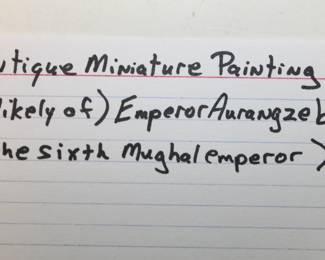 ntique Miniature Painting
likely of) Emperor Aurangzeb
he sixth Mughal emperor)